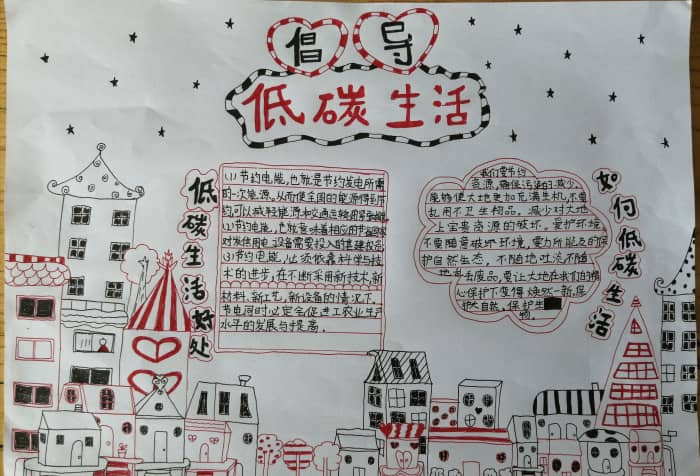 倡导
低碳生活
低碳生活好处
(1)节约电能,也就是节约发电所需
的一次能源。从而使全国的能源得到节
约可以减轻能源和交通运输的紧张
(2)节约电能,也就意味着相应的节省国家
对发供用电设备需要投入的基建投资
(3)节约电能,必须依靠科学与技
术的进步,在不断采用新技术,新
材料、新工艺,新设备的情况下,
节电同时必定会促进工农业生产
水平的发展与提高.
如何低碳生活
我们要节约
资源,确保污染的减少,
能够使大地更加充满生机,不要
乱用不卫生物品,减少对大地
上宝贵资源的破坏。爱护环境
不要随意破坏环境,要力所能及的保
护自然生态,不随地吐痰不随
地丢废品,要让大地在我们的精
心保护下变得焕然一新,保
护大自然,保护生
物.